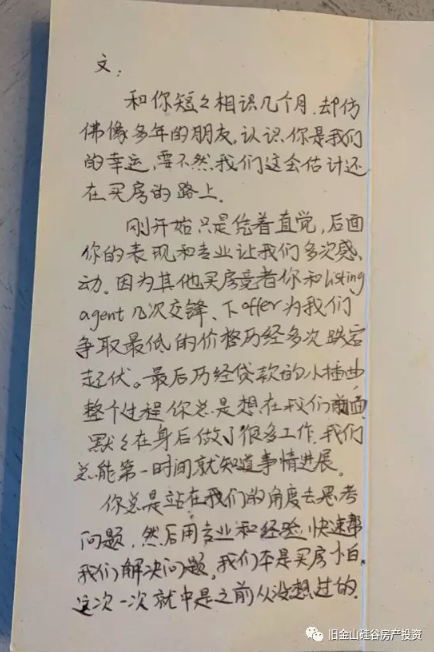 文：
和你短々相识几个月，却仿
佛像多年的朋友。认识你是我们
的幸运，要不然我们这会估计还
在买房的路上.
刚开始只是凭着直觉，后面
你的表现和专业让我们多次感
动。因为其他买房竞者你和listing
agent几次交锋、下offer为我们
争取最低的价格历经多次跌宕
起伏。最后历经贷款的小插曲
整个过程你总是想在我们前面
默々在身后做了很多工作.我们
总能第一时间就知道事情进展。
你总是站在我们的角度去思考
问题，然后用专业和经验快速帮
我们解决问题。我们本是买房小白，
这次一次就中是之前从没想过的.
旧金山硅谷房产投资